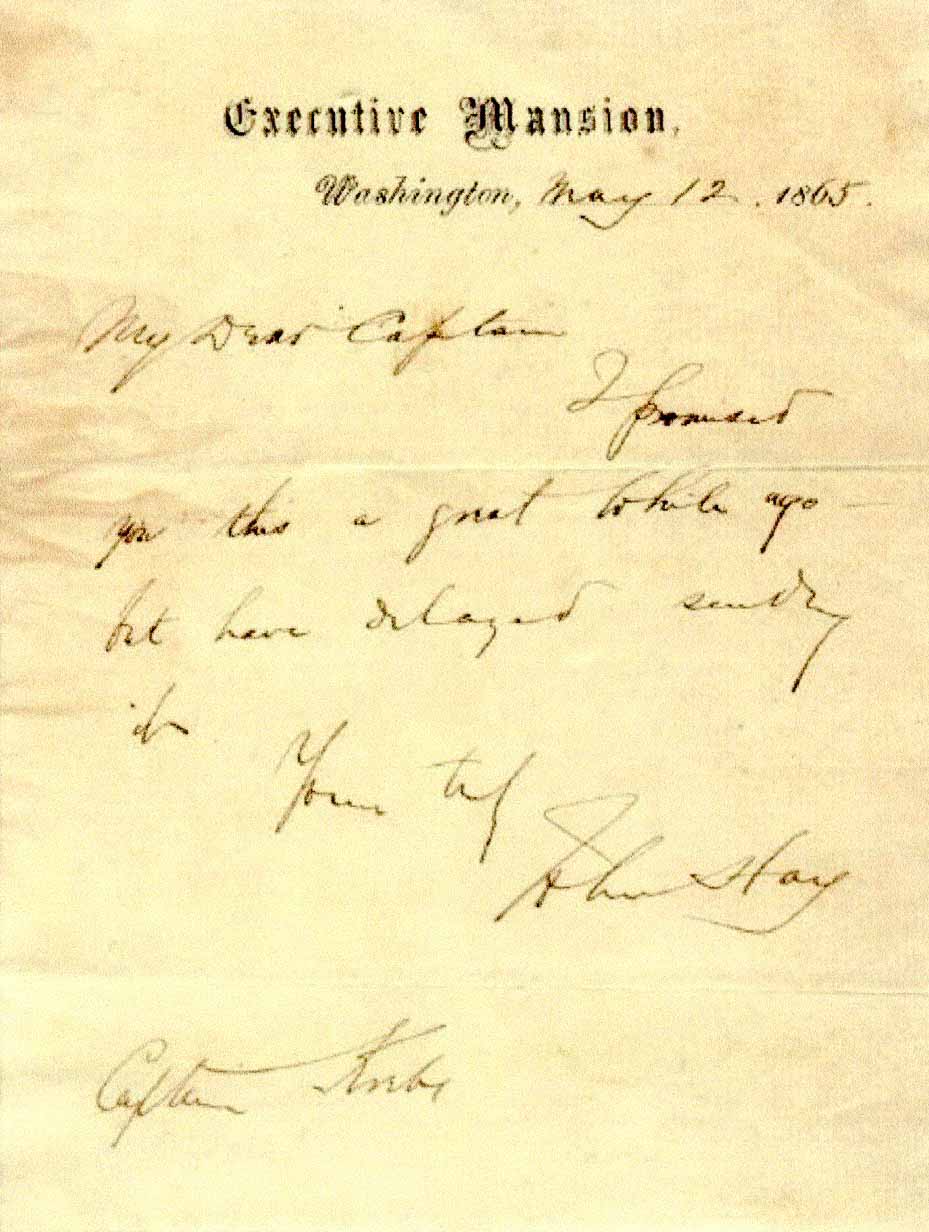 Executive Mansion,
Washington, May 12. 1865.
My Dear Captain
I promised
you this a great while ago —
but have delayed sending
it.
Yours trly
John Hay
Captain Krebs